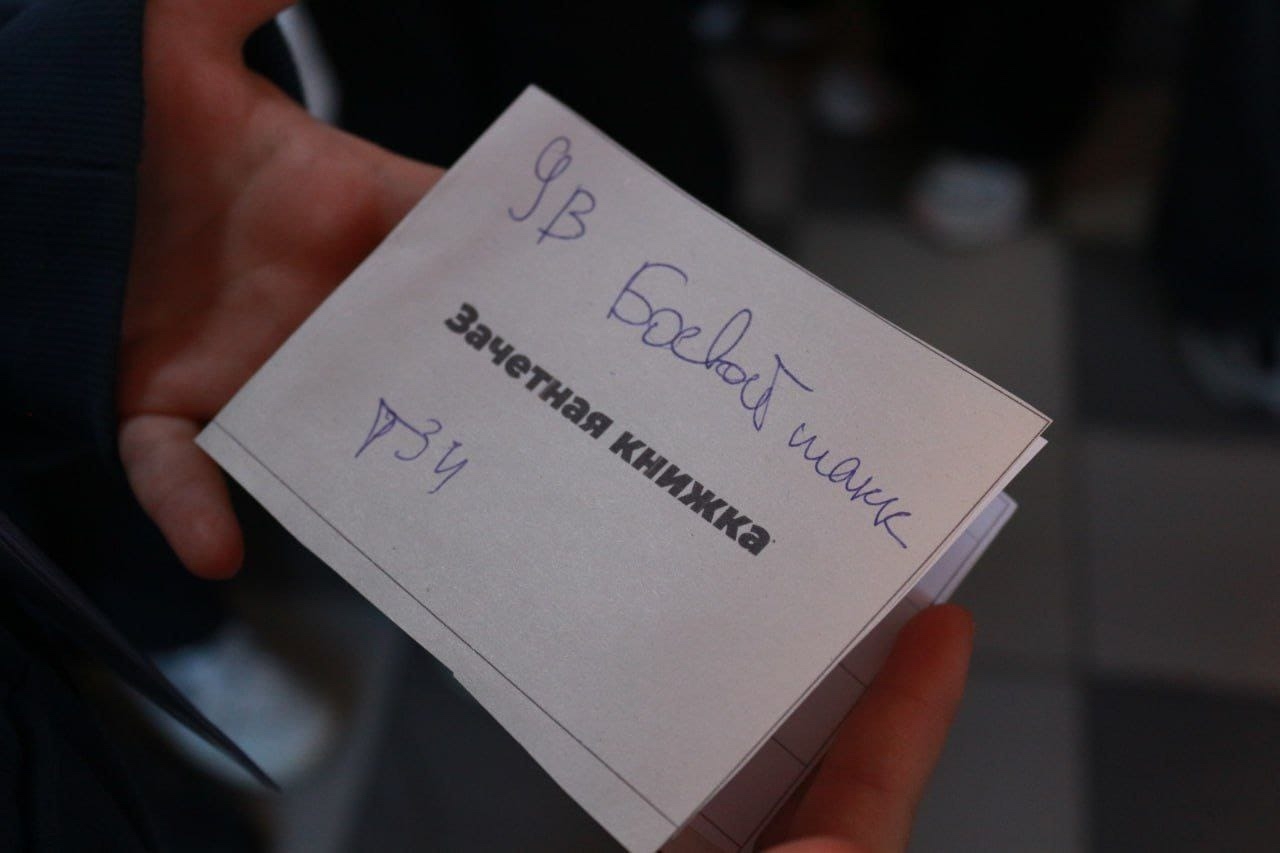 9В
Боевой танк
Зачетная книжка